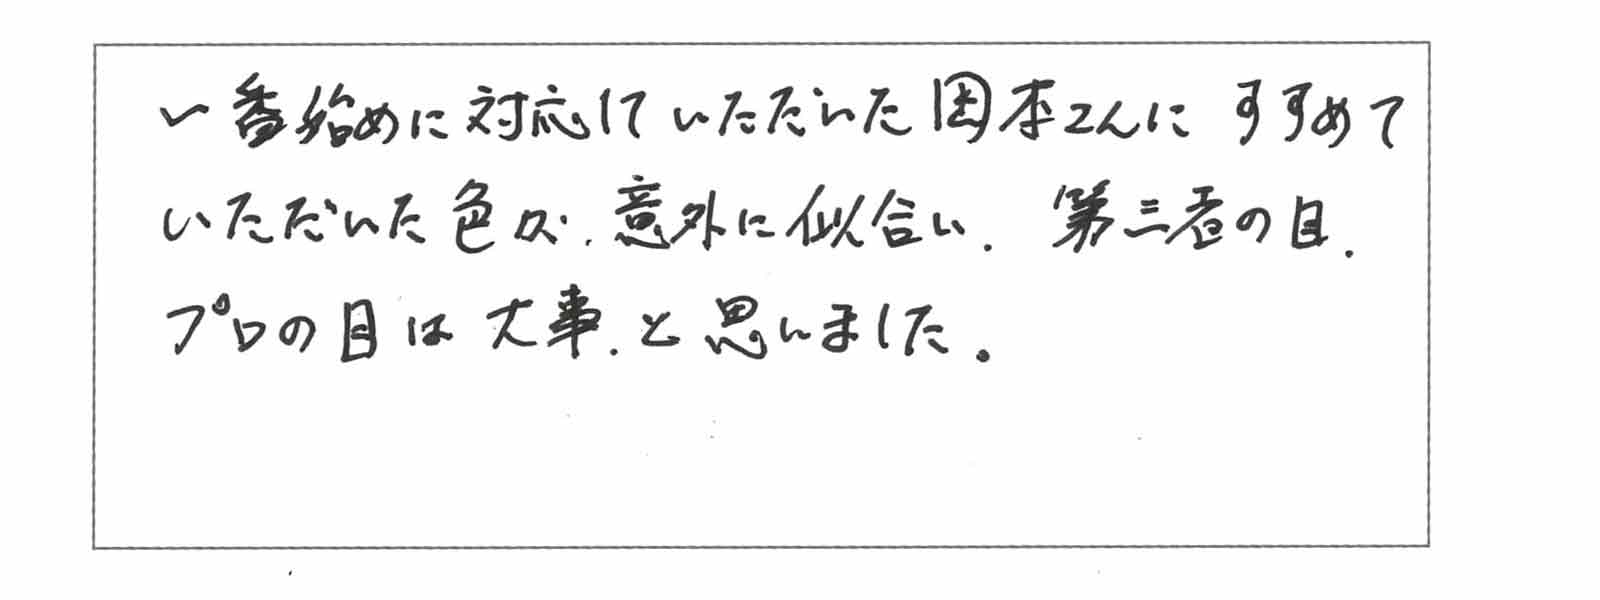 一番始めに対応していただいた岡本さんにすすめて
いただいた色が、意外に似合い、第三者の目、
プロの目は大事、と思いました。